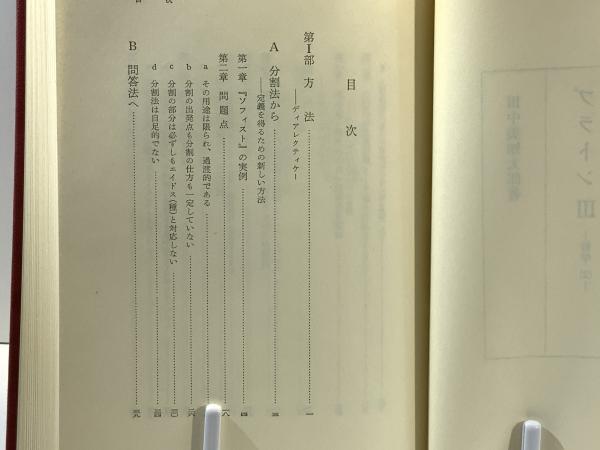 目次
第Ⅰ部 方法
――ディアレクティケー
A 分割法から
――定義を得るための新しい方法
第一章 『ソフィスト』の実例
第二章 問題点
a その用途は限られ、過渡的である
b 分割の出発点も分割の仕方も一定していない
c 分割の部分は必ずしもエイドス(種)と対応しない
d 分割法は自足的でない
B 問答法へ
プラトン Ⅲ